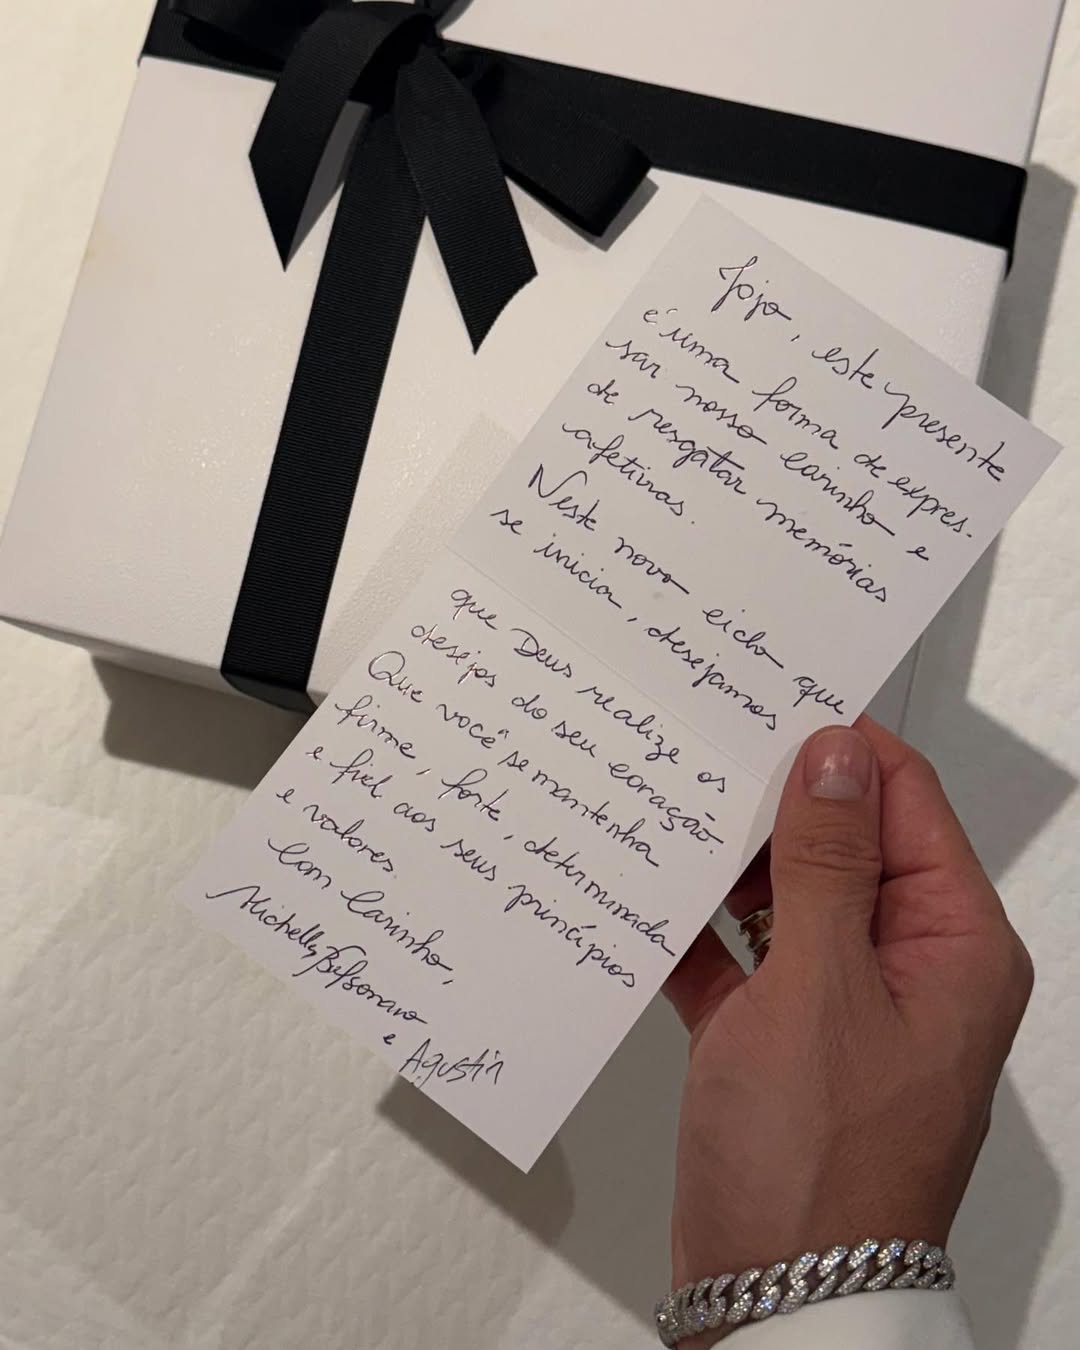 Jojo, este presente
é uma forma de expres-
sar nosso carinho e
de resgatar memórias
afetivas.
Neste novo ciclo que
se inicia, desejamos
que Deus realize os
desejos do seu coração.
Que você se mantenha
firme, forte, determinada
e fiel aos seus princípios
e valores.
Com Carinho,
Michelle Bolsonaro
e Agustin